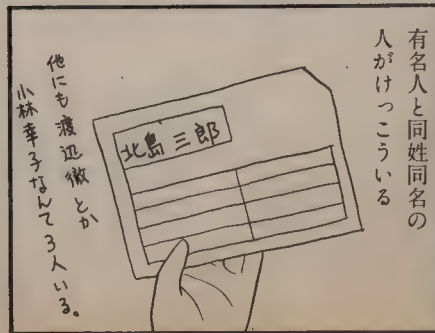 有名人と同姓同名の
人がけっこういる
北島三郎
他にも渡辺徹とか
小林幸子なんて3人いる。